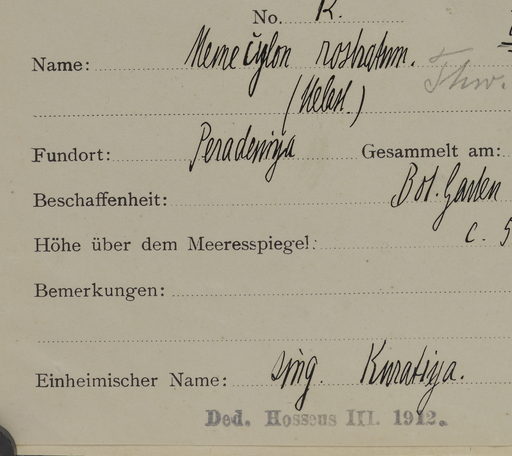 No. R.
Name: Memecylon rostratum.
Thw.
(Melast.)
Fundort: Peradeniya Gesammelt am:
Beschaffenheit: Bot. Garten
Höhe über dem Meeresspiegel: c. 5
Bemerkungen:
Einheimischer Name: sing. Kuratiya.
Ded. Hosseus III. 1912.